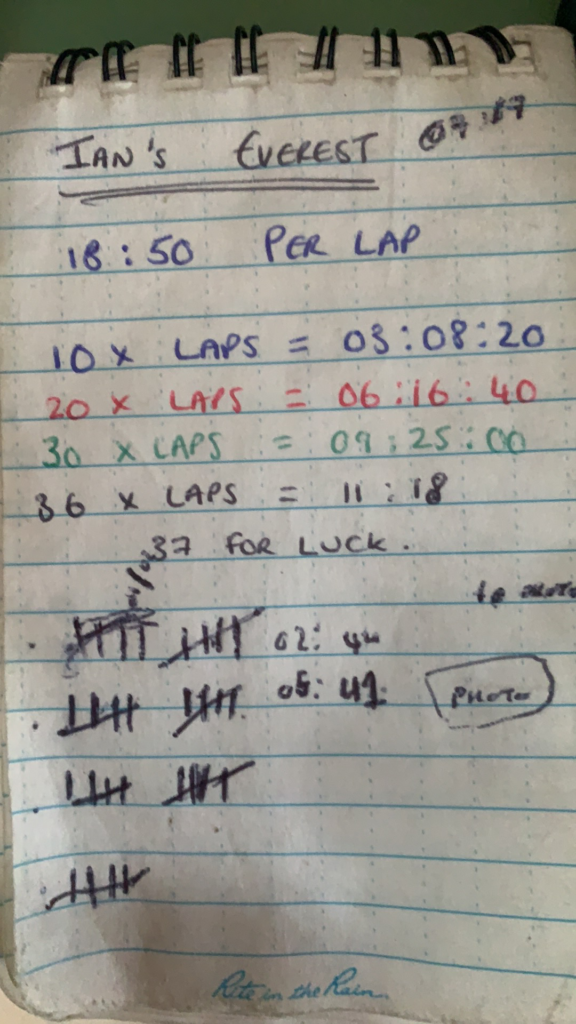 IAN'S EVEREST
18:50 PER LAP
10 x LAPS = 03:08:20
20 x LAPS = 06:16:40
30 x LAPS = 09:25:00
36 x LAPS = 11:18
37 FOR LUCK.
02:
05:41
PHOTO
Rite in the Rain